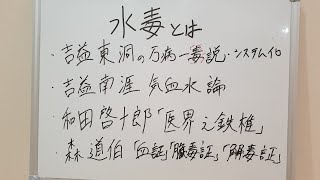 水毒とは
・吉益東洞の万病一毒説・システム化
・吉益南涯 気血水論
・和田啓十郎「医界之鉄椎」
・森 道伯「血証」「臓毒証」「解毒証」